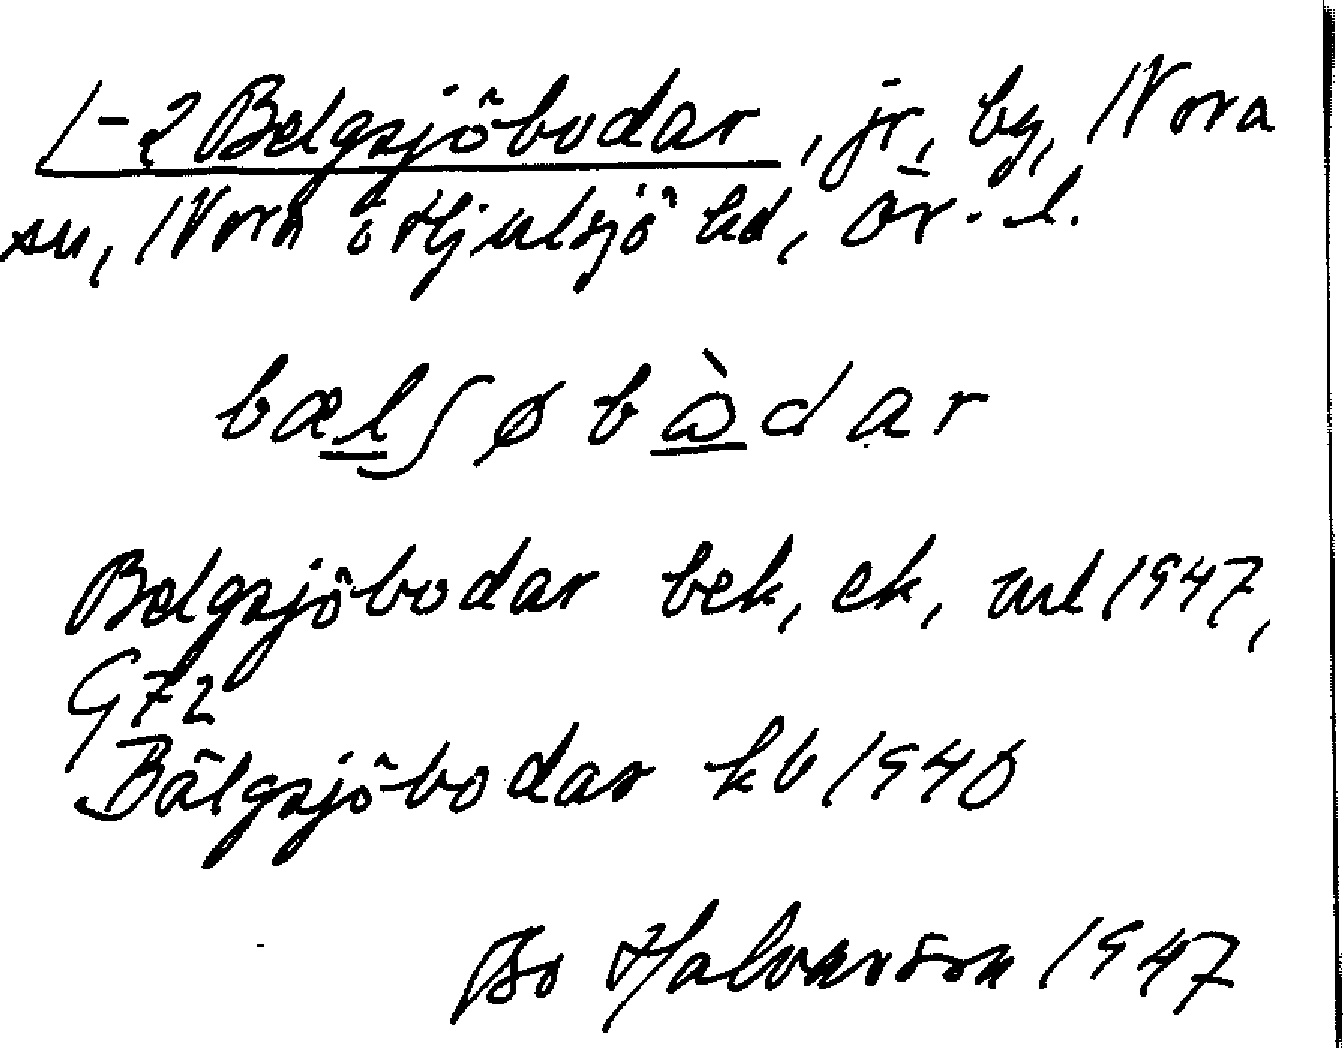 1-2 Belgsjöbodar, jr, by, Nora
sn, Nora o Hjulsjö hd, Ör. l.
bælʃøbὼdar
Belgsjöbodar bek, ek, url 1947,
G72
Bälgsjöbodar kb 1940
Bo Halvarson 1947